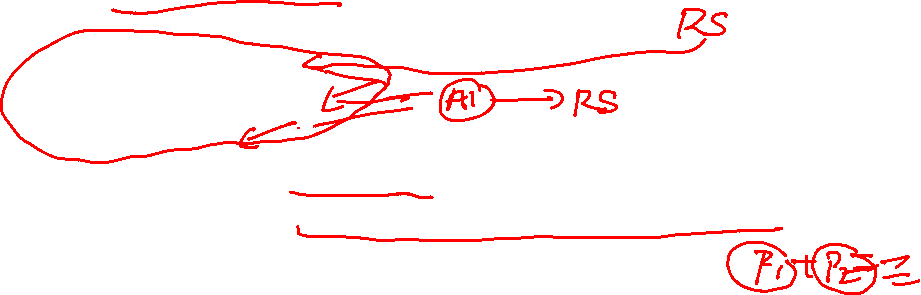 RS
A1 → RS
P1 + P2 =